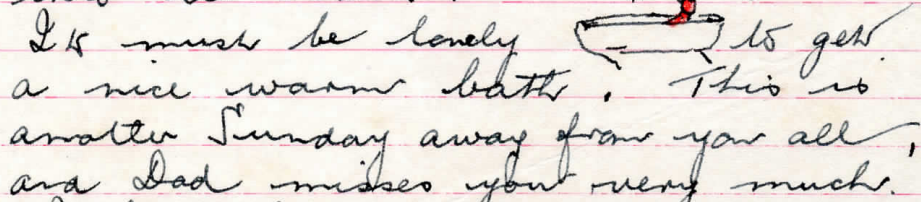 It must be lovely to get
a nice warm bath. This is
another Sunday away from you all,
and Dad misses you very much.